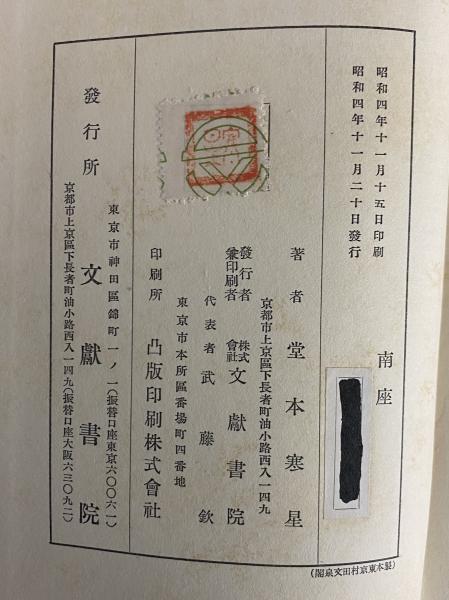 昭和四年十一月十五日印刷
昭和四年十一月二十日發行
南座
著者 堂本寒星
京都市上京區下長者町油小路西入一四九
發行者兼印刷者 株式會社 文獻書院
代表者 武藤欽
東京市本所區番場町四番地
印刷所 凸版印刷株式會社
東京市神田區錦町一ノ一(振替口座東京六〇〇六一)
發行所 文獻書院
京都市上京區下長者町油小路西入一四九(振替口座大阪六三〇九二)
(製本東京村田文泉閣)